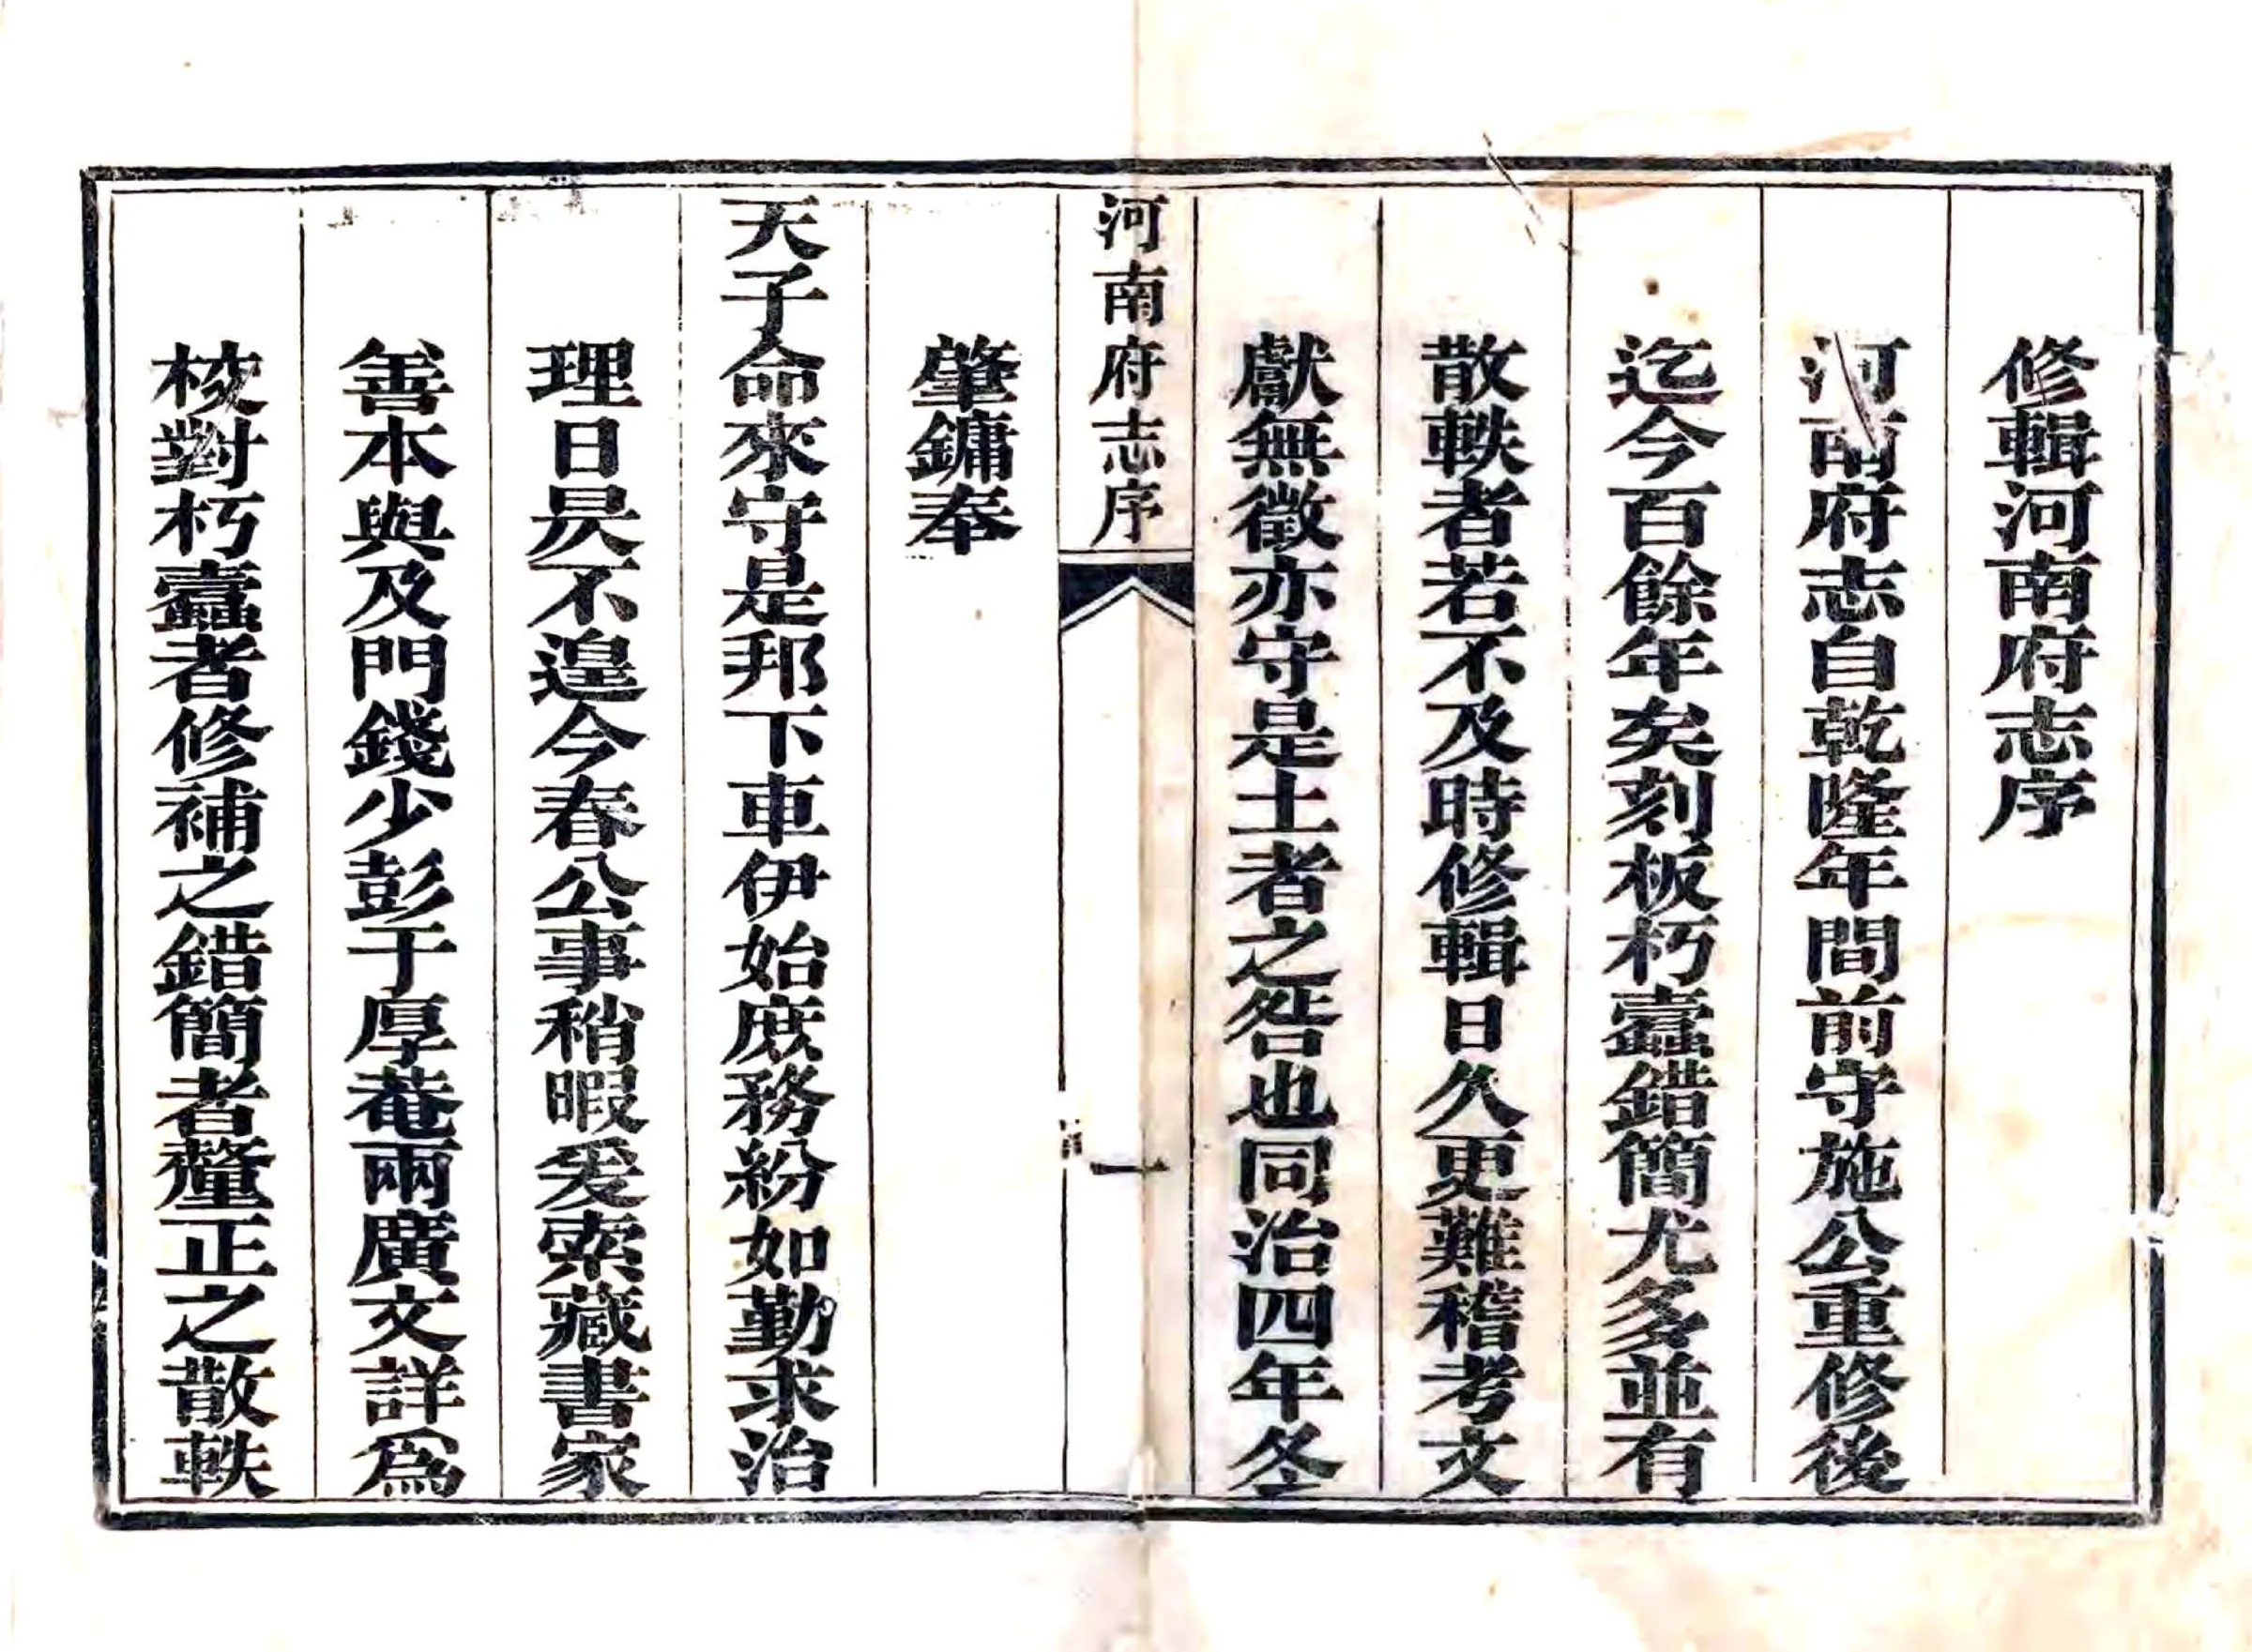 修輯河南府志序
河南府志自乾隆年間前守施公重修後
迄今百餘年矣刻板朽蠹錯簡尤多並有
散軼者若不及時修輯日久更難稽考文
獻無徵亦守是土者之咎也同治四年冬
河南府志序
一
肇鏞奉
天子命來守是邦下車伊始庶務紛如勤求治
理日昃不遑今春公事稍暇爰索藏書家
善本與及門錢少彭于厚菴兩廣文詳為
校對朽蠹者修補之錯簡者釐正之散軼